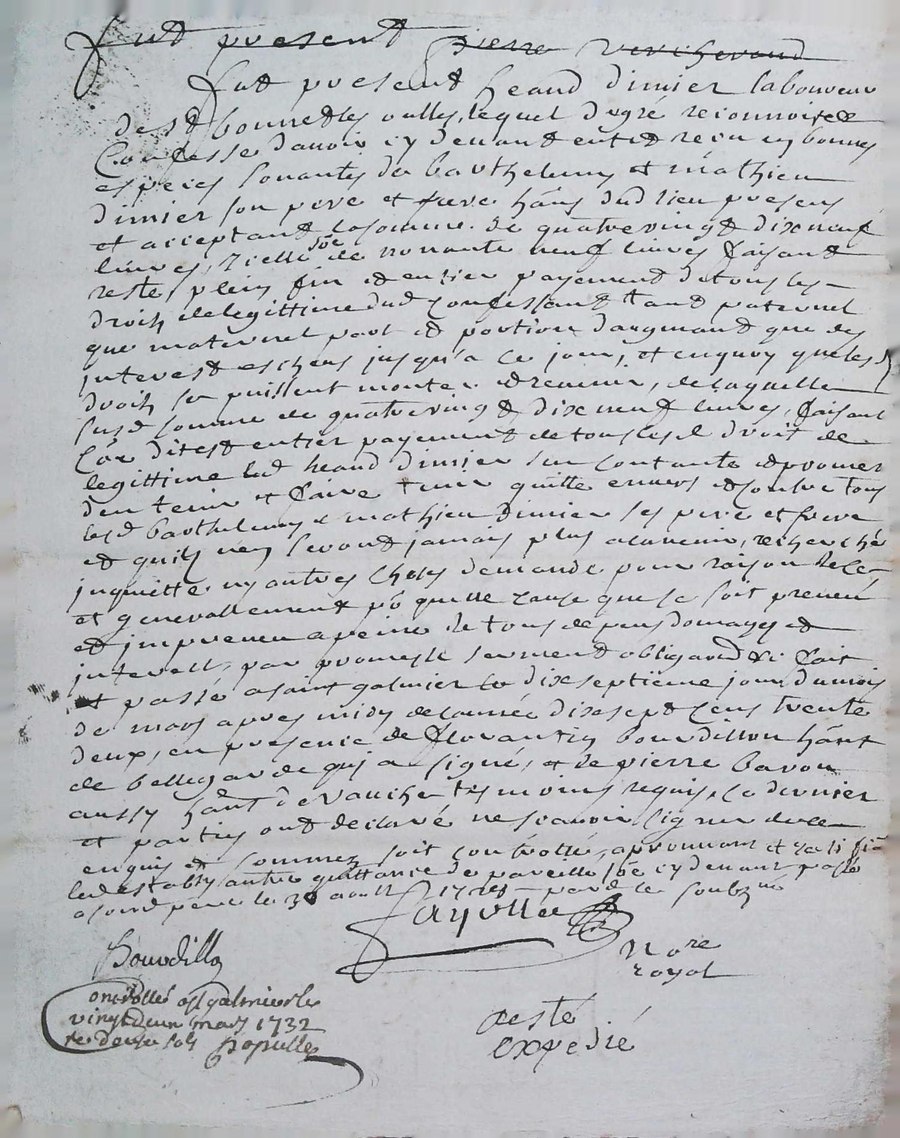 fut present pierre vercherand
fut present heand dimier laboureur
de st bonnet les oulles, lequel de gré reconnoit et
Confesse d'avoir cy devant et reçu en bonnes
especes sonantes de barthelemy et mathieu
dimier son pere et frere hāns dud lieu presens
et acceptant la somme de quatrevingt dixneuf
livres, icelle soē de nonante neuf livres faisant
reste, plein fin et entier payement de tous les
droits de legittime dud Confessant tant paternel
que maternel part et portion daugmand que des
interest escheus jusqu'a ce jour, et en quoy que lesd
droits se puissent monter et revenir, de laquelle
susd somme de quatrevingt dixneuf livres, faisant
entier payement de tous lesd droit de
legittime led heand dimier sen contante et promet
den tenir et faire tenir quitte envers et contre tous
lesd barthelemy et mathieu dimier ses pere et frere
et quils nen seront jamais plus a lavenir, recherché
inquietté ny autres choses demandé pour raison de ce
et generallement pō quelle cause que ce soit preveu
et impreveu a peine de tous depens domages et
interest, par promesse serment obligaōn &c fait
et passé a saint galmier le dixseptième jour du mois
de mars apres midy de lannée dixsept cens trente
deux, en presence de florantin bourdillon hānt
de bellegarde qui a signé, et de pierre baron
aussy hānt de vauche tesmoins requis, le dernier
et parties ont declaré ne scavoir signer de ce
enquis et sommez soit controllé, aprouvant et
led establi autre quittance de pareille soē cy devant passé
a sond pere le 30 aoust par le soubzné
fayolle
Bourdillon
Nore
royal
Controllé a st galmier le
vingt deux mars 1732
re douse sols
a esté
expedié